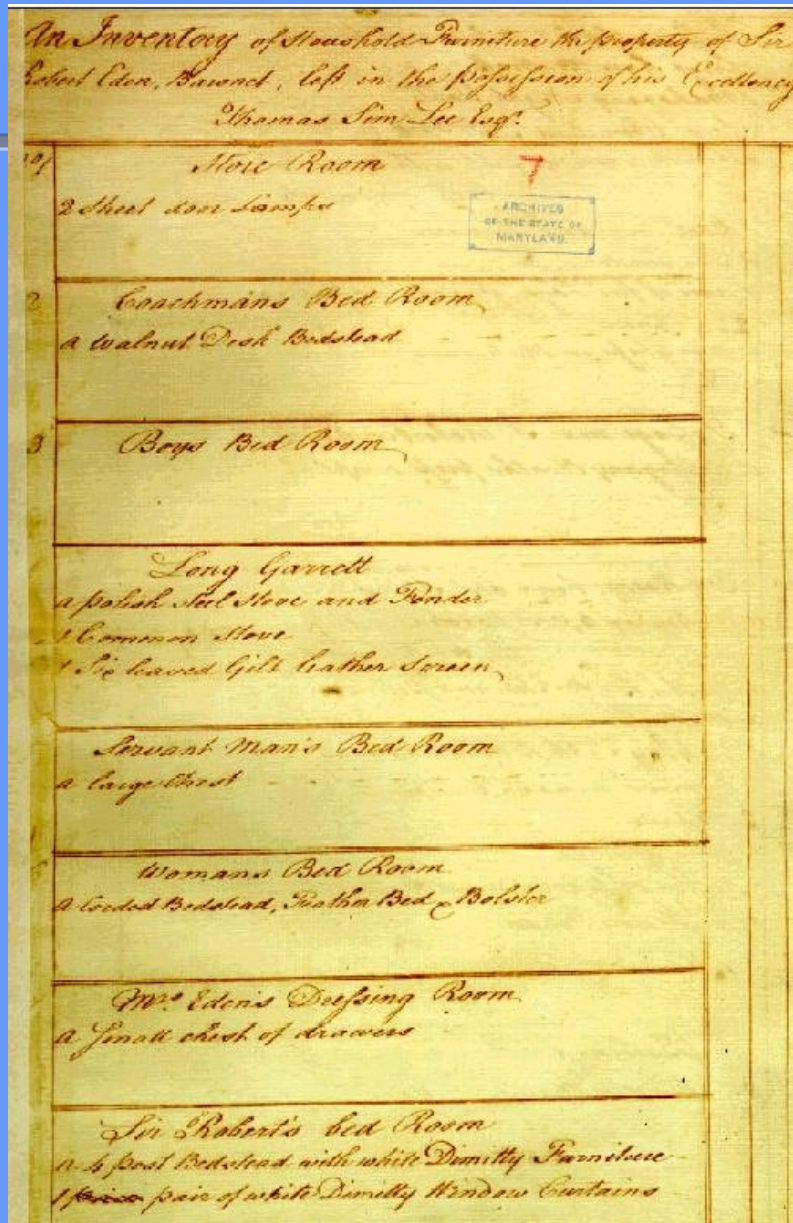 An Inventory of Houshold Furniture the property of Sir
Robert Eden, Baronet, left in the possession of his Excellency
Thomas Sim Lee Esqr.
No 1
Store Room
7
2 Sheet Iron Lamps
ARCHIVES
OF THE STATE OF
MARYLAND.
2
Coachmans Bed Room
a Walnut Desk Bedstead
3
Boys Bed Room
Long Garrett
a polish steel Stove and Fender
1 Common Stove
1 Six leaved Gilt leather Screen
Servant Man's Bed Room
a large Chest
Womans Bed Room
a Corded Bedstead, Feather Bed & Bolster
Mrs Eden's Dressing Room
a Small chest of drawers
Sir Robert's bed Room
a 4 post Bedstead with white Dimitty Furniture
1 pair of white Dimitty Window Curtains